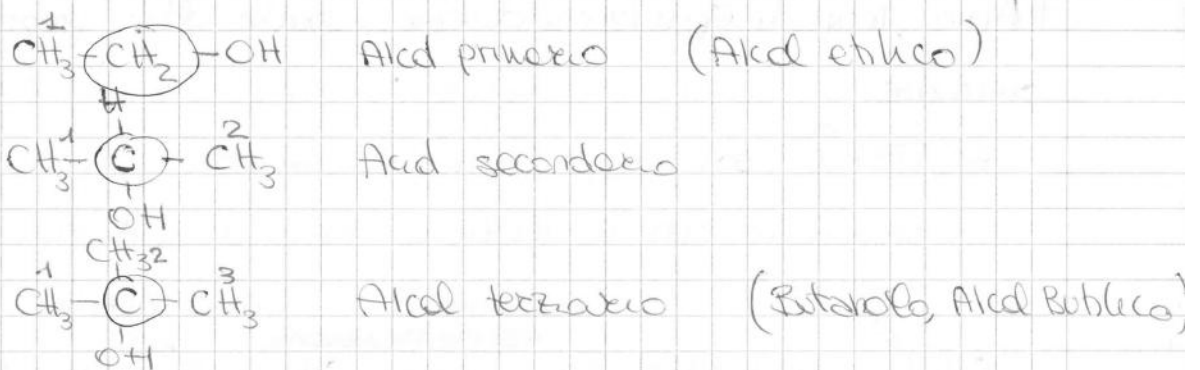 1
CH3-CH2-OH Alcol primario (Alcol etilico)
H
1 2
CH3-C-CH3 Alcol secondario
OH
CH3 2
1 3
CH3-C-CH3 Alcol terziario (Butanolo, Alcol Butilico)
OH